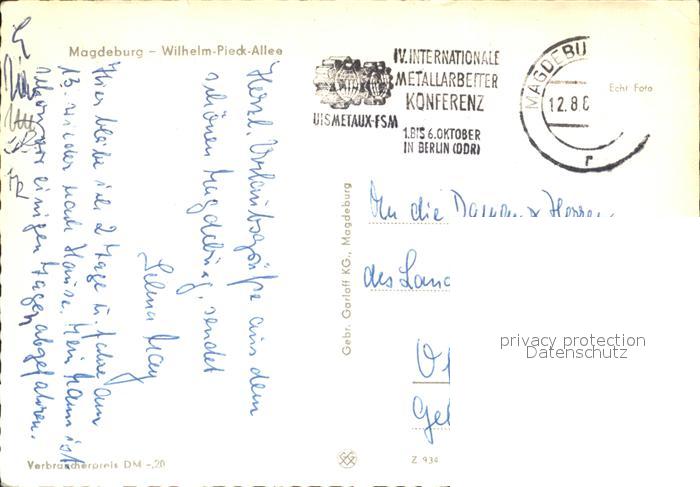 Magdeburg – Wilhelm-Pieck-Allee
Herzl. Urlaubsgrüße aus dem
schönen Magdeburg, sendet
Selma May
Hier bleibe ich 2 Tage u. fahre am
13. wieder nach Hause. Mein Mann ist
schon vor einigen Tagen abgefahren.
Verbraucherpreis DM -,20
Gebr. Garloff KG., Magdeburg
IV. INTERNATIONALE
METALLARBEITER
KONFERENZ
UISMETAUX-FSM
1.BIS 6.OKTOBER
IN BERLIN (DDR)
MAGDEBU
12.8.6
r
Echt Foto
An die Damen & Herren
des Land
Ge
privacy protection
Datenschutz
Z 934